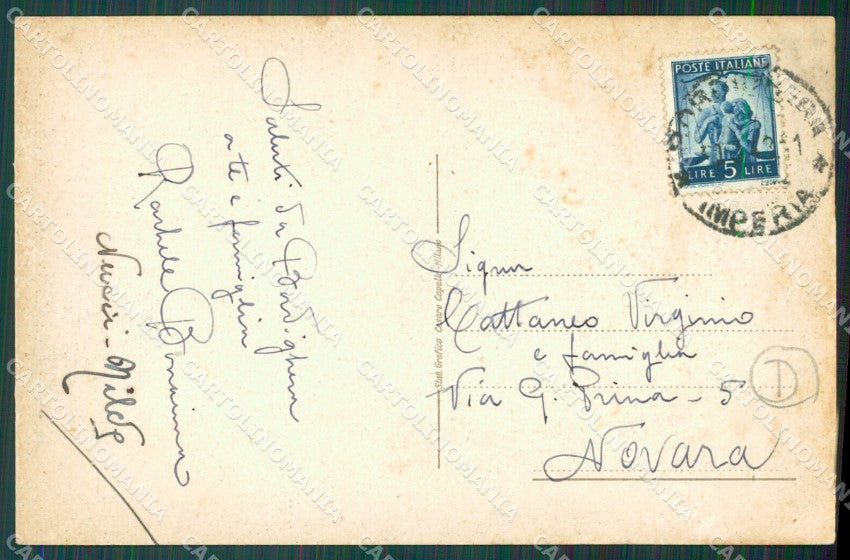 Saluti da Bordighera
a te e famiglia
Rachele Bonaima
POSTE ITALIANE
LIRE 5 LIRE
BORDIGHERA
IMPERIA
Stab. Grafico Cesare Capello Milano
Signor
Cattaneo Virginio
e famiglia
Via G. Prina - 5
Novara
D
CARTOLINOMANIA